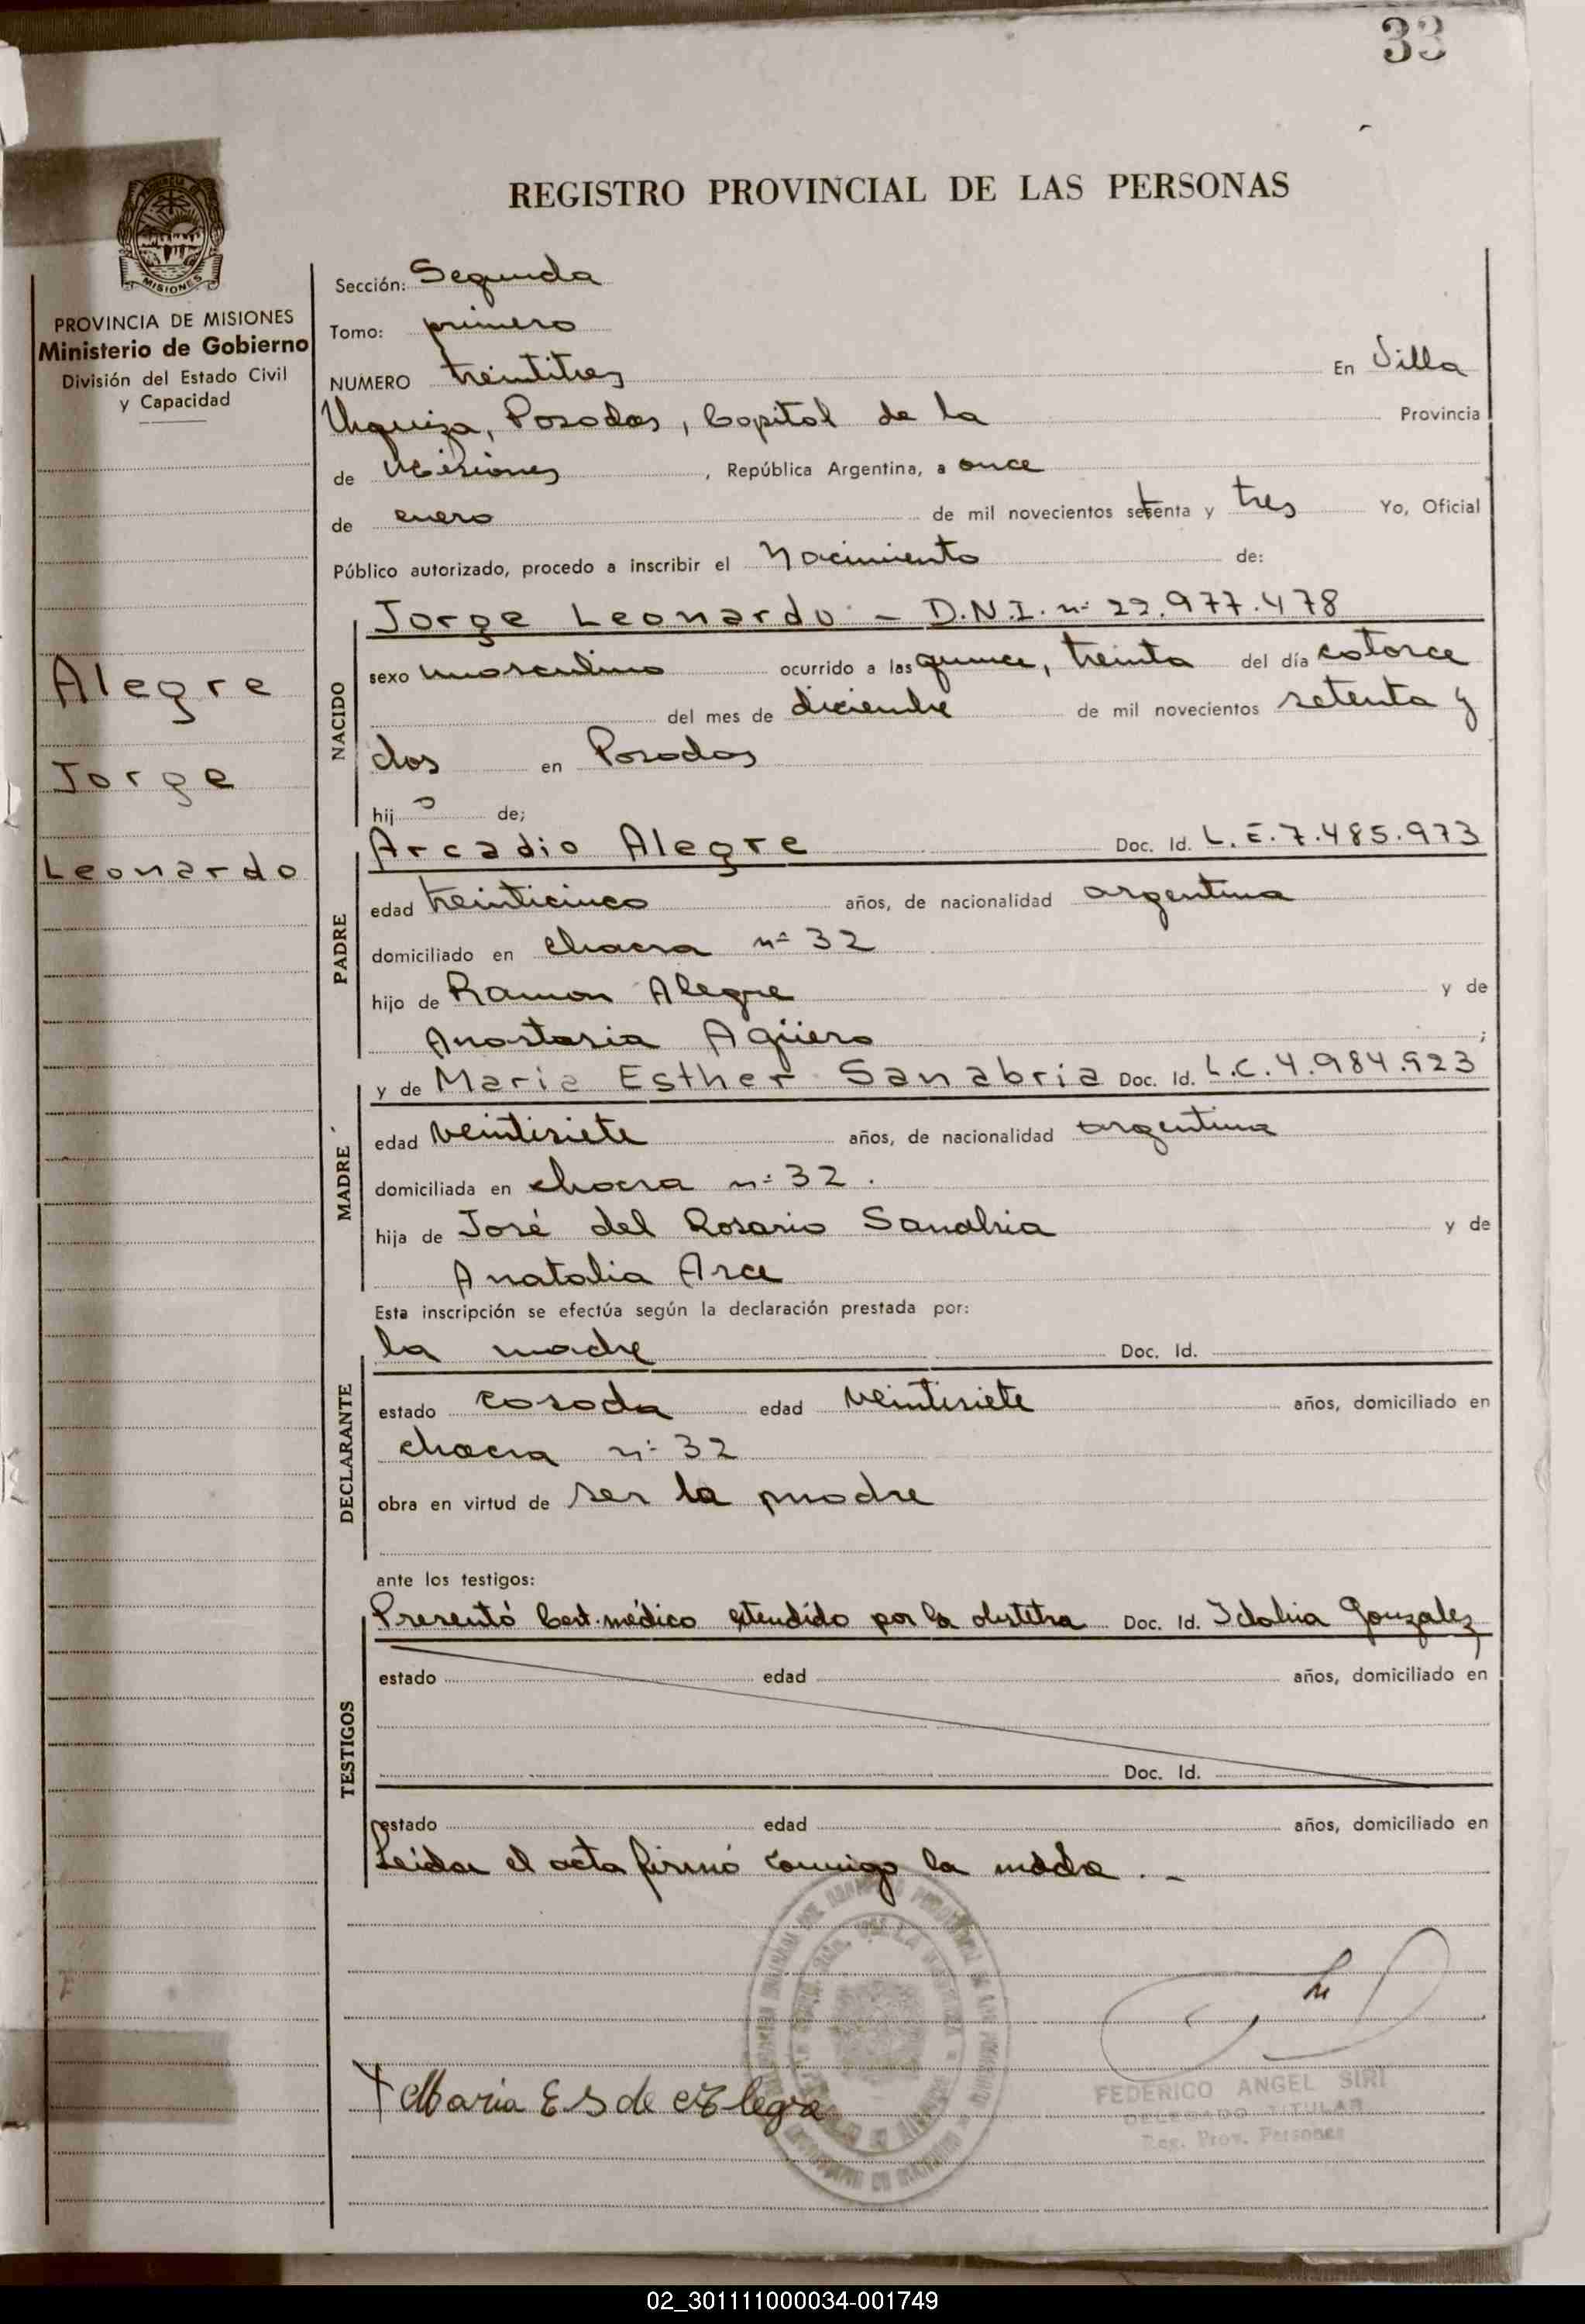 33
REGISTRO PROVINCIAL DE LAS PERSONAS
MISIONES
PROVINCIA DE MISIONES
Ministerio de Gobierno
División del Estado Civil
y Capacidad
Alegre
Jorge
Leonardo
Sección: Segunda
Tomo: primero
NUMERO treintitres En Villa
Urquiza, Posadas, Capital de la Provincia
de Misiones, República Argentina, a once
de enero de mil novecientos setenta y tres Yo, Oficial
Público autorizado, procedo a inscribir el Nacimiento de:
NACIDO
Jorge Leonardo - D.N.I. nº 22.977.478
sexo masculino ocurrido a las quince, treinta del día catorce
del mes de diciembre de mil novecientos setenta y
dos en Posadas
hijo de;
PADRE
Arcadio Alegre Doc. Id. L.E. 7.485.973
edad treinticinco años, de nacionalidad argentina
domiciliado en chacra nº 32
hijo de Ramon Alegre y de
Anastasia Agüero ;
MADRE
y de Maria Esther Sanabria Doc. Id. L.C. 4.984.923
edad veintisiete años, de nacionalidad argentina
domiciliada en chacra nº 32.
hija de José del Rosario Sanabria y de
Anatalia Arce
Esta inscripción se efectúa según la declaración prestada por:
DECLARANTE
la madre Doc. Id.
estado casada edad veintisiete años, domiciliado en
chacra nº 32
obra en virtud de ser la madre
ante los testigos:
TESTIGOS
Presentó Cert. médico extendido por la obstetra Doc. Id. Idalvia Gonzalez
estado edad años, domiciliado en
Doc. Id.
estado edad años, domiciliado en
Leída el acta firmó conmigo la madre.-
Maria E S de Alegre
FEDERICO ANGEL SIRI
DELEGADO TITULAR
Reg. Prov. Personas
02_301111000034-001749